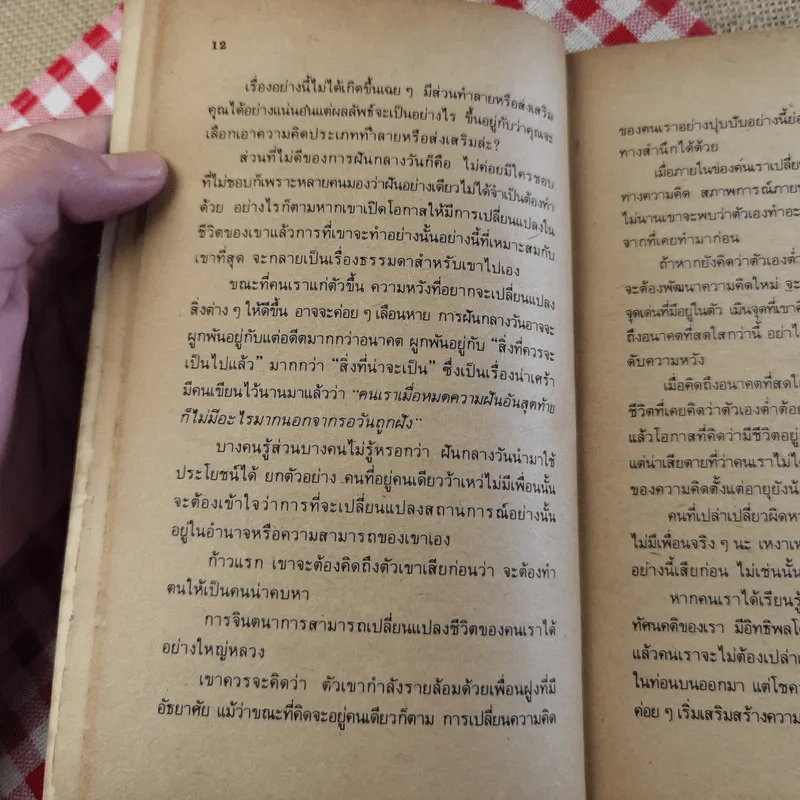 12
เรื่องอย่างนี้ไม่ได้เกิดขึ้นเฉย ๆ มีส่วนทำลายหรือส่งเสริม
คุณได้อย่างแน่นอนแต่ผลลัพธ์จะเป็นอย่างไร ขึ้นอยู่กับว่าคุณจะ
เลือกเอาความคิดประเภททำลายหรือส่งเสริมล่ะ?
ส่วนที่ไม่ดีของการฝันกลางวันก็คือ ไม่ค่อยมีใครชอบ
ที่ไม่ชอบก็เพราะหลายคนมองว่าฝันอย่างเดียวไม่ได้จำเป็นต้องทำ
ด้วย อย่างไรก็ตามหากเขาเปิดโอกาสให้มีการเปลี่ยนแปลงใน
ชีวิตของเขาแล้วการที่เขาจะทำอย่างนั้นอย่างนี้ที่เหมาะสมกับ
เขาที่สุด จะกลายเป็นเรื่องธรรมดาสำหรับเขาไปเอง
ขณะที่คนเราแก่ตัวขึ้น ความหวังที่อยากจะเปลี่ยนแปลง
สิ่งต่าง ๆ ให้ดีขึ้น อาจจะค่อย ๆ เลือนหาย การฝันกลางวันอาจจะ
ผูกพันอยู่กับแต่อดีตมากกว่าอนาคต ผูกพันอยู่กับ “สิ่งที่ควรจะ
เป็นไปแล้ว” มากกว่า “สิ่งที่น่าจะเป็น” ซึ่งเป็นเรื่องน่าเศร้า
มีคนเขียนไว้นานมาแล้วว่า “คนเราเมื่อหมดความฝันอันสุดท้าย
ก็ไม่มีอะไรมากนอกจากรอวันถูกฝัง”
บางคนรู้ส่วนบางคนไม่รู้หรอกว่า ฝันกลางวันนำมาใช้
ประโยชน์ได้ ยกตัวอย่าง คนที่อยู่คนเดียวว้าเหว่ไม่มีเพื่อนนั้น
จะต้องเข้าใจว่าการที่จะเปลี่ยนแปลงสถานการณ์อย่างนั้น
อยู่ในอำนาจหรือความสามารถของเขาเอง
ก้าวแรก เขาจะต้องคิดถึงตัวเขาเสียก่อนว่า จะต้องทำ
ตนให้เป็นคนน่าคบหา
การจินตนาการสามารถเปลี่ยนแปลงชีวิตของคนเราได้
อย่างใหญ่หลวง
เขาควรจะคิดว่า ตัวเขากำลังรายล้อมด้วยเพื่อนฝูงที่มี
อัธยาศัย แม้ว่าขณะที่คิดจะอยู่คนเดียวก็ตาม การเปลี่ยนความคิด
ของคนเราอย่างปุบปับอย่างนี้ย่อ
ทางสำนึกได้ด้วย
เมื่อภายในของคนเราเปลี่ย
ทางความคิด สภาพการณ์ภาย
ไม่นานเขาจะพบว่าตัวเองทำอะ
จากที่เคยทำมาก่อน
ถ้าหากยังคิดว่าตัวเองต่ำ
จะต้องพัฒนาความคิดใหม่ จะ
จุดเด่นที่มีอยู่ในตัว เมินจุดที่เขาคิ
ถึงอนาคตที่สดใสกว่านี้ อย่าไ
ดับความหวัง
เมื่อคิดถึงอนาคตที่สดใ
ชีวิตที่เคยคิดว่าตัวเองต่ำต้อย
แล้วโอกาสที่คิดว่ามีชีวิตอยู่
แต่น่าเสียดายที่ว่าคนเราไม่ได้
ของความคิดตั้งแต่อายุยังน้
คนที่เปล่าเปลี่ยวผิดหวั
ไม่มีเพื่อนจริง ๆ นะ เหงาเห
อย่างนี้เสียก่อน ไม่เช่นนั้น
หากคนเราได้เรียนรู้
ทัศนคติของเรา มีอิทธิพลใ
แล้วคนเราจะไม่ต้องเปล่าเ
ในท่อนบนออกมา แต่โชค
ค่อย ๆ เริ่มเสริมสร้างความ